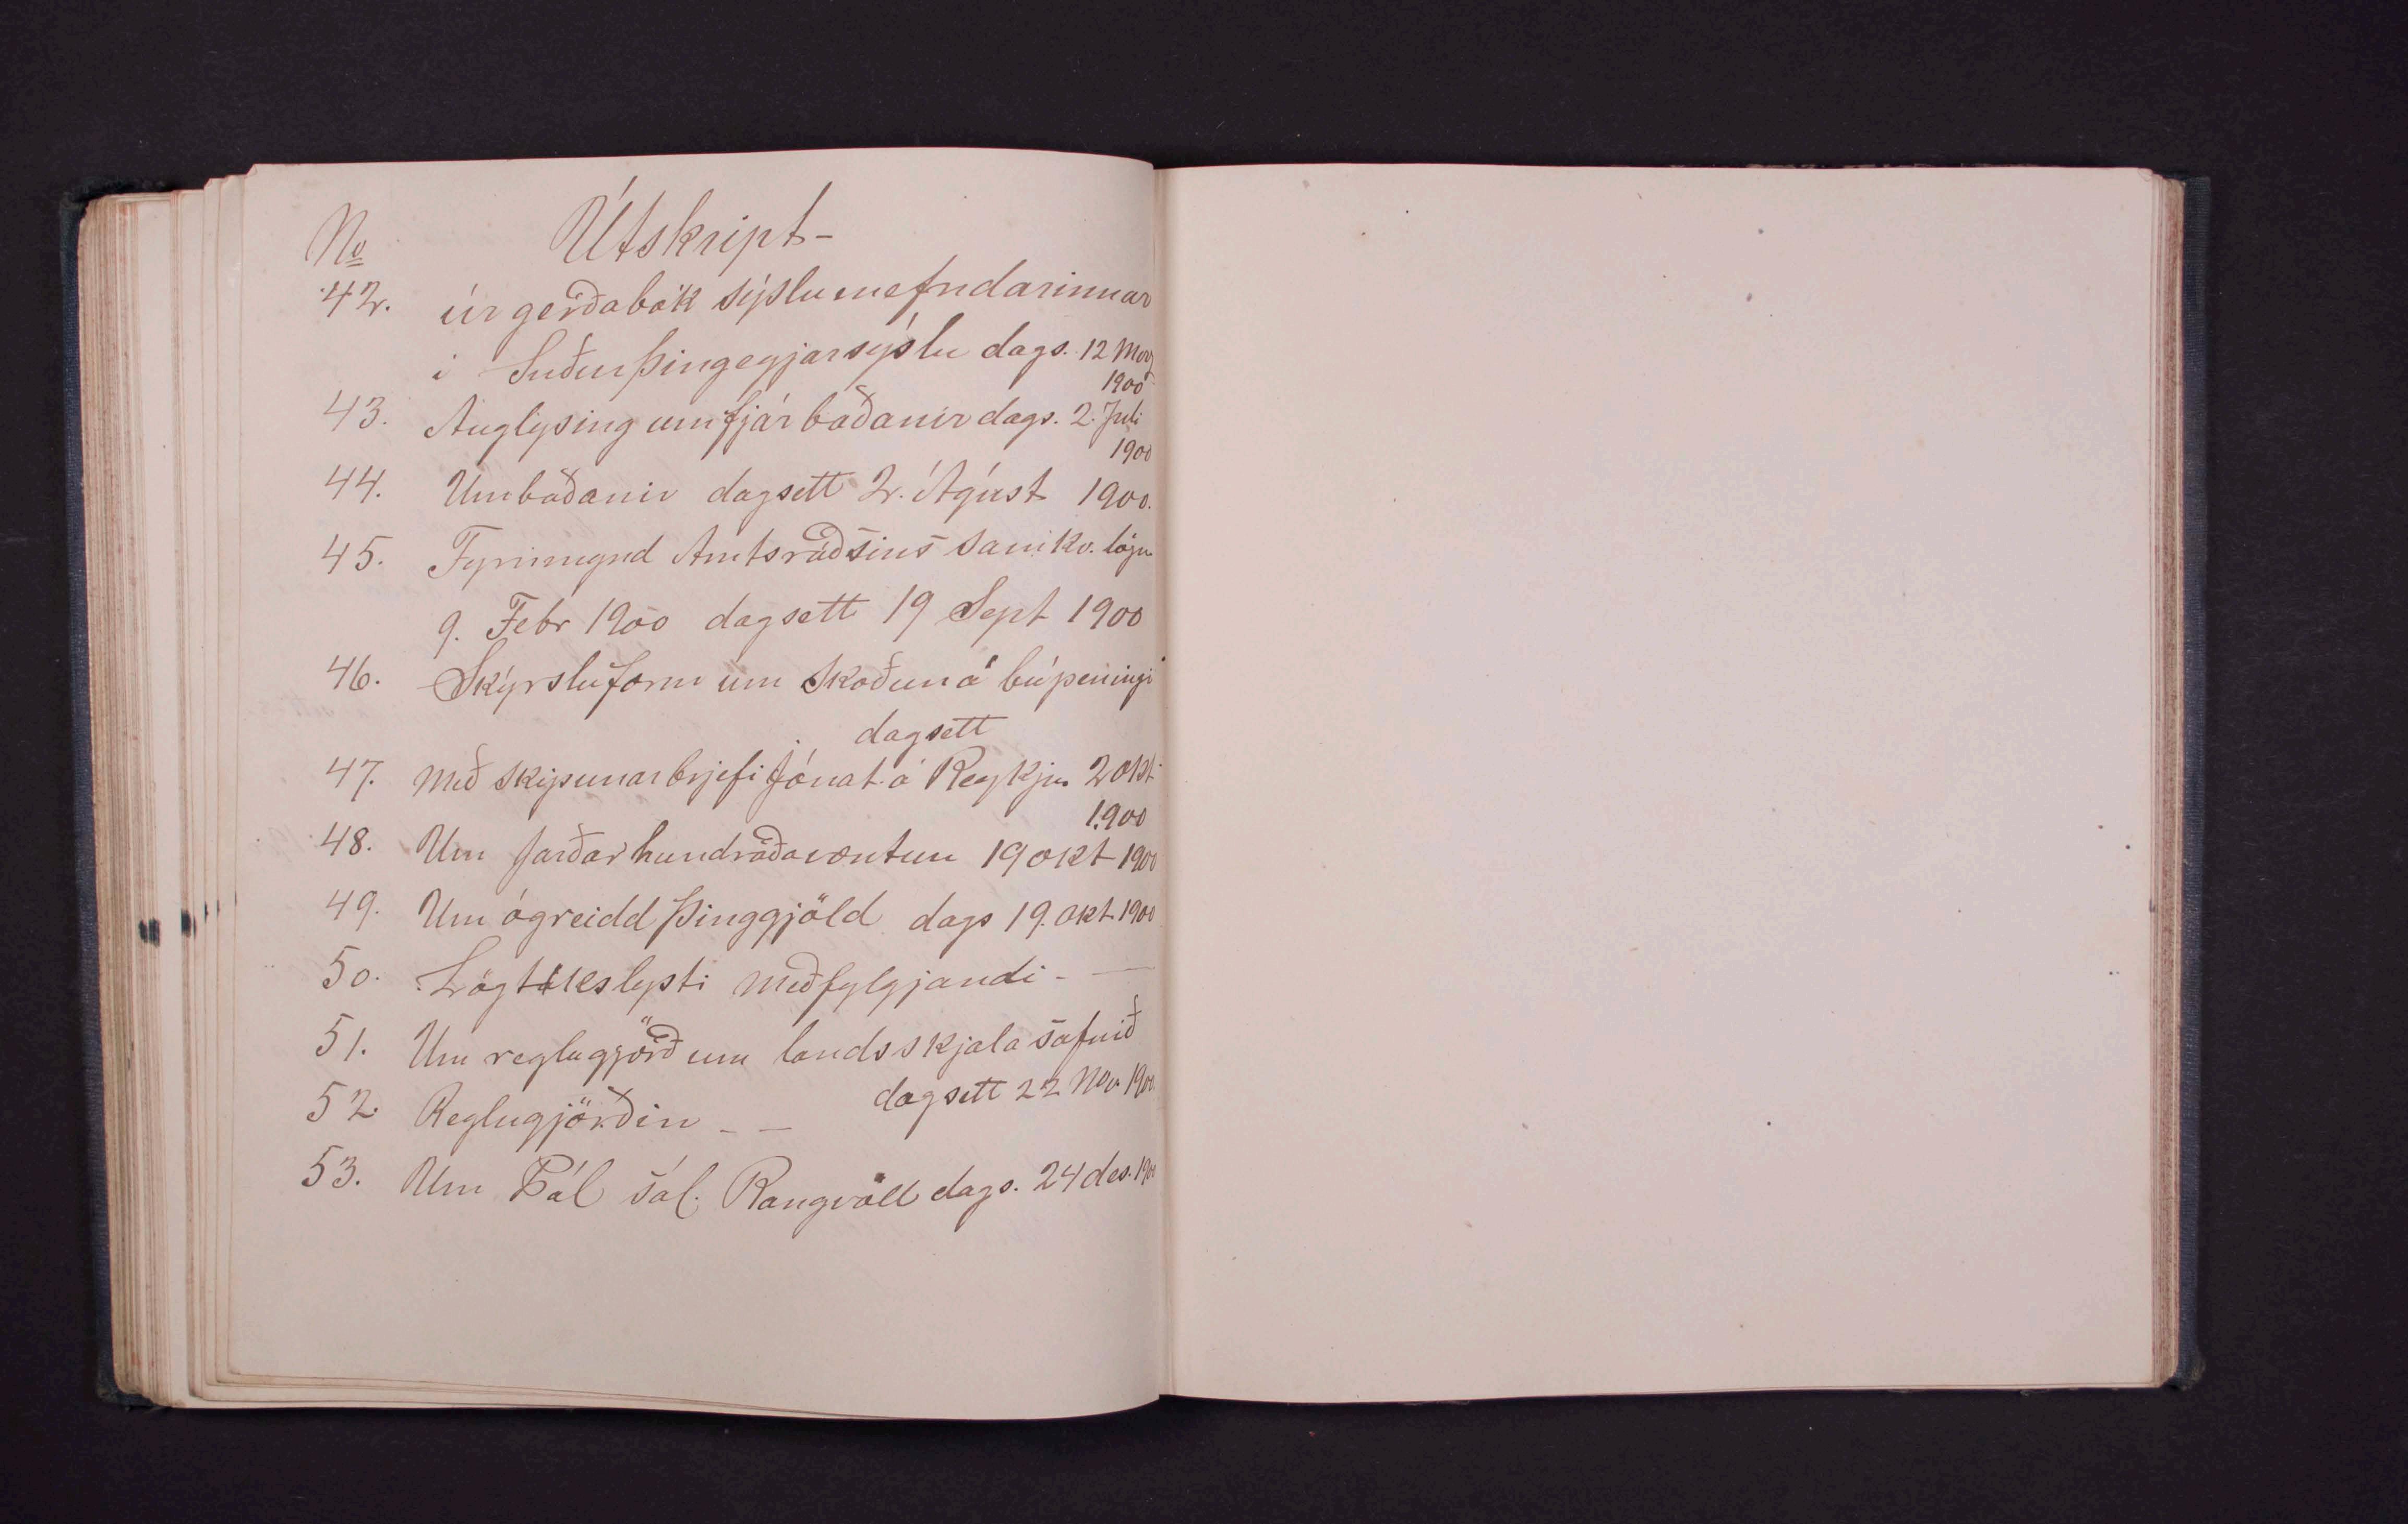 No Útskript-
42. úr gerðabók sýslunefndarinnar
í Suðurþingeyjarsýslu dags. 12 Marz
1900
43. Auglýsing um fjárbaðanir dags. 2. Juli
1900
44. Um baðanir dagsett 2. Ágúst 1900.
45. Fyrirmynd Amtsráðsins samkv. lögu
9. Febr 1900 dagsett 19 Sept 1900
46. Skýrsluform um skoðun á búpeningi
dagsett
47. Með skipunarbrjefi Jónat. á Reykjum 2 okt
1900
48. Um jarðarhundraðavöntun 19 okt 1900
49. Um ógreidd þinggjöld dags 19. okt. 1900
50. Lögtakslysti meðfylgjandi - —
51. Um reglugjörð um landsskjalasafnið
dagsett 22 Nov 1900.
52. Reglugjörðin - —
53. Um Pál sál. Rangvöll dags. 24 des. 1900